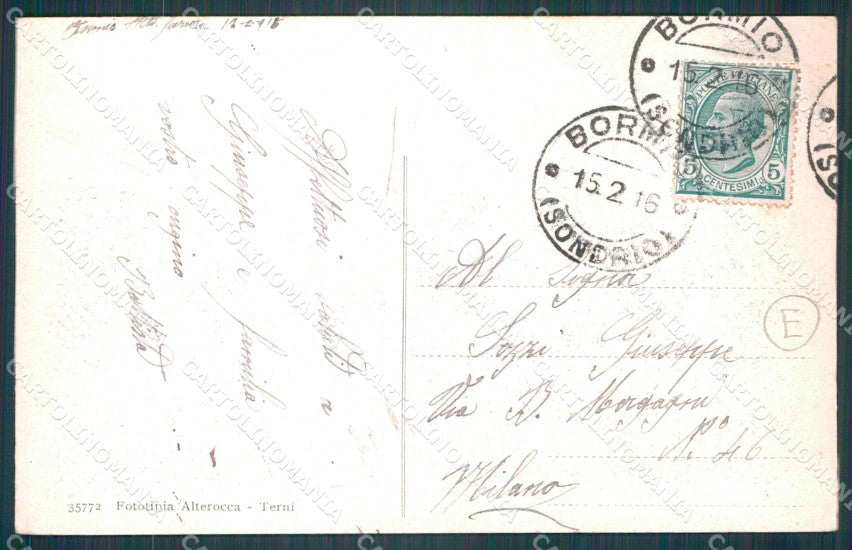 12-2-916
Affettuosi saluti a
Giuseppe e famiglia
vostro cugino
Battista
BORMIO
15.2.16
(SONDRIO)
BORMIO
15.2.16
(SONDRIO)
POSTE ITALIANE
5 CENTESIMI 5
Al Signor
Sozzi Giuseppe
Via B. Morgagni
N.º 46
Milano
E
35772 Fototipia Alterocca - Terni
CARTOLINOMANIA